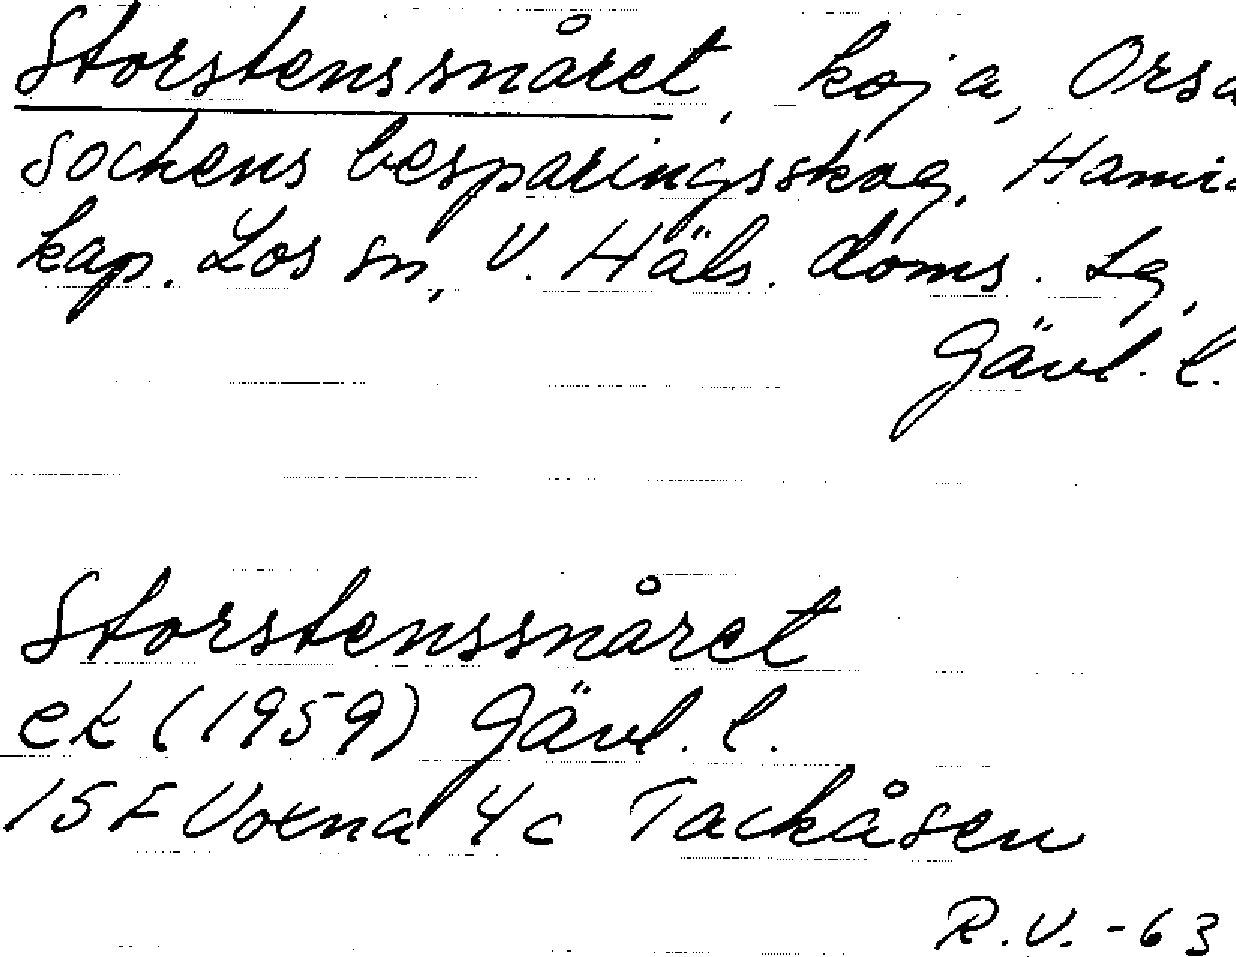 Storstenssnåret, koja, Orsa
sockens besparingsskog, Hamra
kap. Los sn, V. Häls. doms. lg,
Gävl. l.
Storstenssnåret
ek (1959) Gävl. l.
15 F Voxna 4c Tackåsen
R.V. -63